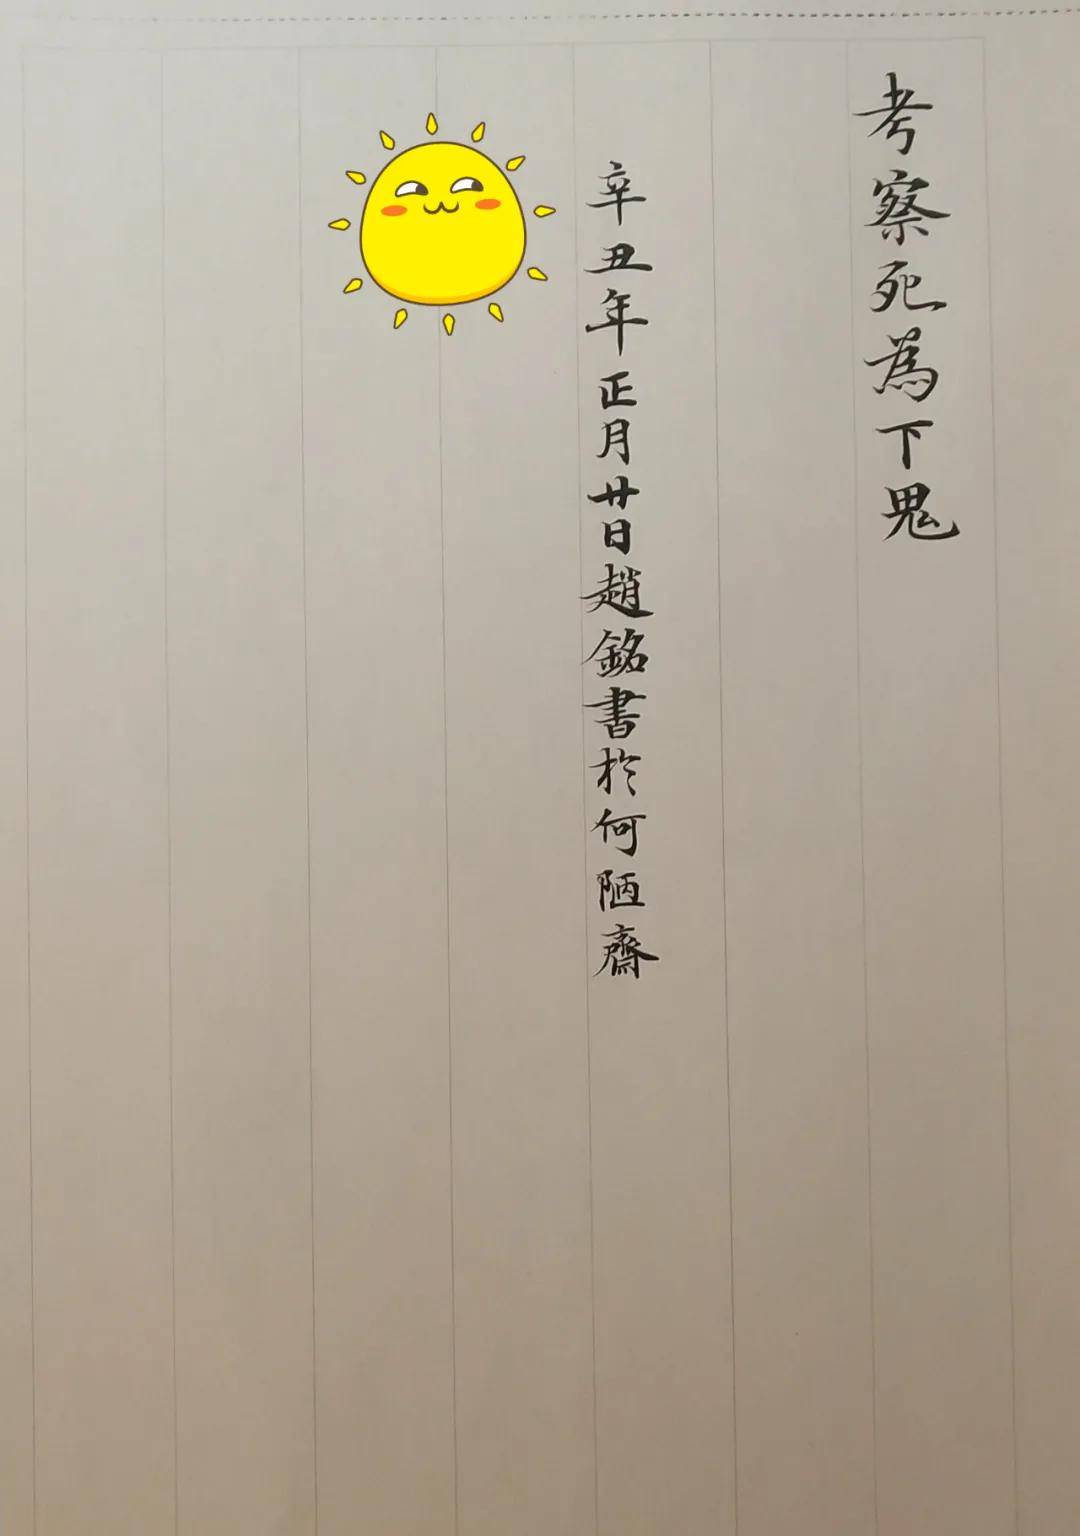 考察死為下鬼
辛丑年正月廿日趙銘書於何陋齋